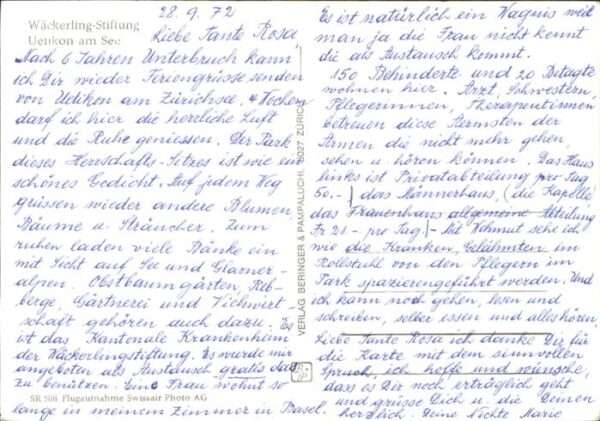 Wäckerling-Stiftung
Uetikon am See
28.9.72
Liebe Tante Rosa,
Nach 6 Jahren Unterbruch kann
ich Dir wieder Feriengrüsse senden
von Uetikon am Zürichsee, 4 Wochen
darf ich hier die herrliche Luft
und die Ruhe geniessen. Der Park
dieses Herrschafts-Sitzes ist wie ein
schönes Gedicht. Auf jedem Weg
grüssen wieder andere Blumen,
Bäume u. Sträucher. Zum
ruhen laden viele Bänke ein
mit Sicht auf See und Glarner-
alpen. Obstbaumgärten, Reb-
berge, Gärtnerei und Viehwirt-
schaft gehören auch dazu. Es
ist das Kantonale Krankenheim
der Wäckerlingstiftung. Es wurde mir
angeboten als Austausch gratis das
zu benützen. Eine Frau wohnt so
lange in meinem Zimmer in Basel.
SR 508 Flugaufnahme Swissair Photo AG
VERLAG BERINGER & PAMPALUCHI, 8027 ZÜRICH
Es ist natürlich ein Wagnis weil
man ja die Frau nicht kennt
die als Austausch kommt.
150 Behinderte und 20 Betagte
wohnen hier. Arzt, Schwestern,
Pflegerinnen, Therapeutinnen
betreuen diese Aermsten der
Armen die nicht mehr gehen,
sehen u. hören können. Das Haus
links ist Privatabteilung pro Tag
50.- | das Männerhaus, (die Kapelle)
das Frauenhaus allgemeine Abteilung
Fr 21 - pro Tag | - Mit Wehmut sehe ich
wie die Kranken, Gelähmten im
Rollstuhl von den Pflegern im
Park spazierengeführt werden. Und
ich kann noch gehen, lesen und
schreiben, selber essen und alles hören.
Liebe Tante Rosa ich danke Dir für
die Karte mit dem sinnvollen
Spruch, ich hoffe und wünsche,
dass es Dir noch erträglich geht
und grüsse Dich u. die Deinen
herzlich. Deine Nichte Marie